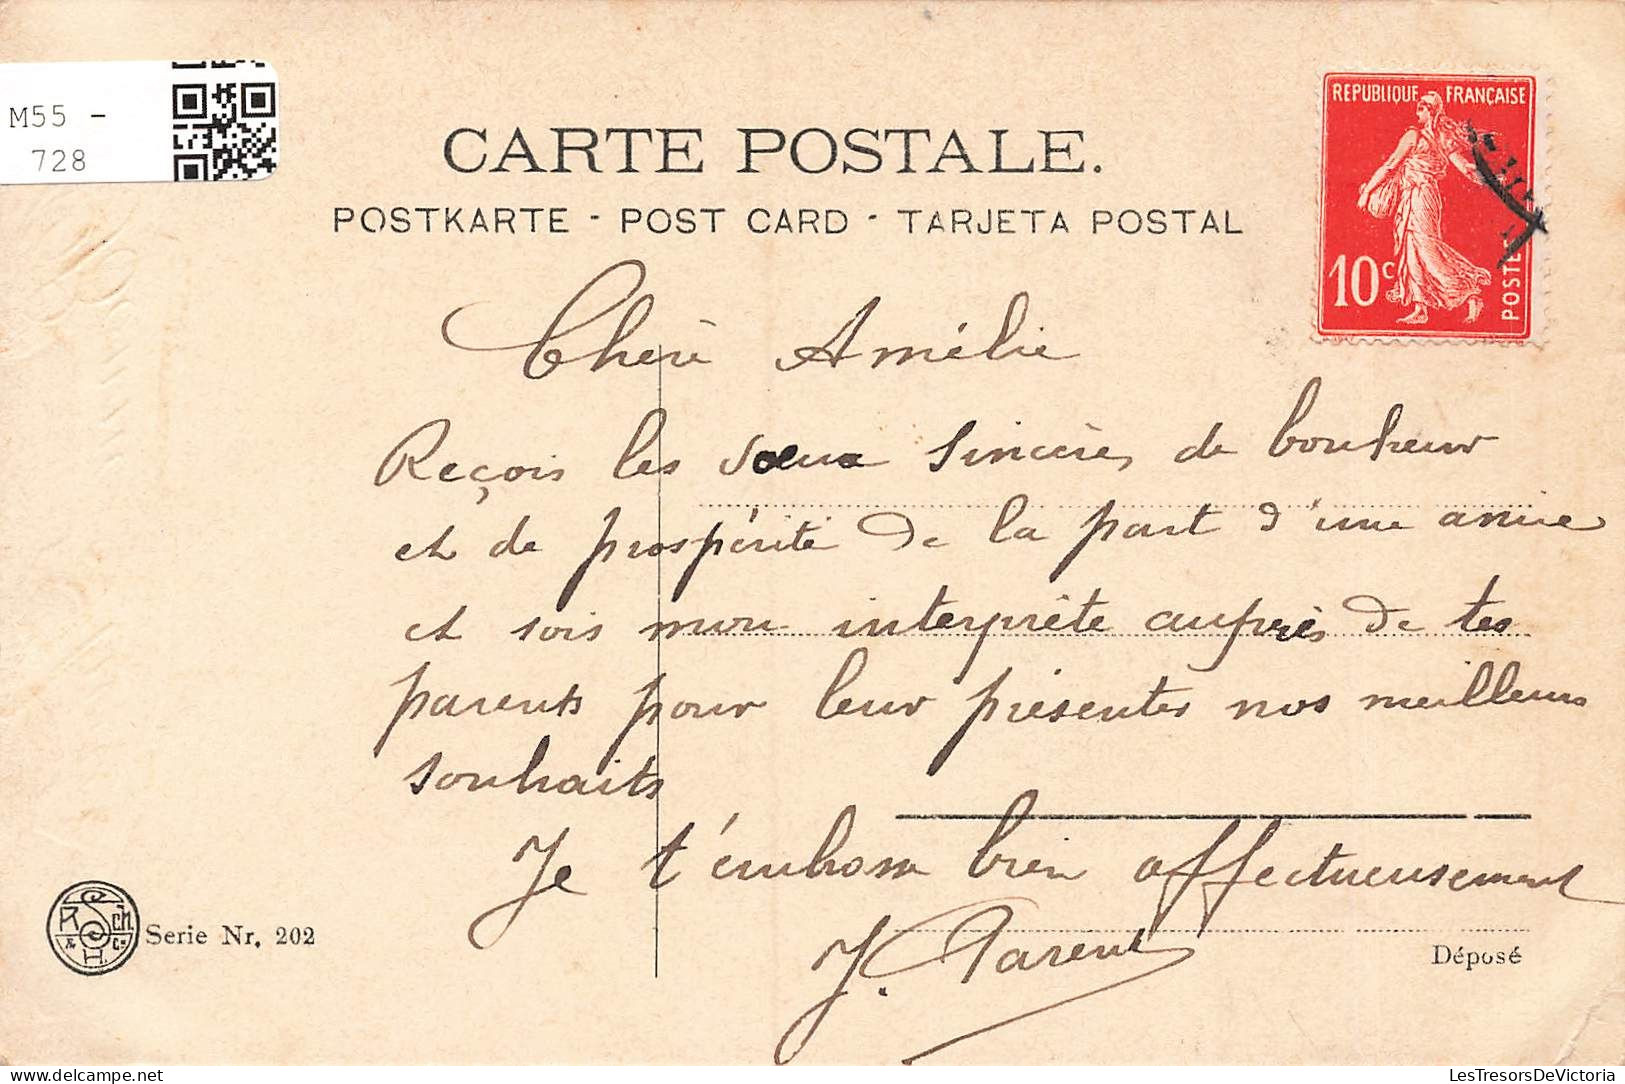 M55 -
728
CARTE POSTALE.
POSTKARTE - POST CARD - TARJETA POSTAL
REPUBLIQUE FRANÇAISE
10c
POSTES
Chère Amélie
Reçois les vœux sincères de bonheur
et de prospérité de la part d'une amie
et sois mon interprète auprès de tes
parents pour leur présenter nos meilleurs
souhaits
Je t'embrasse bien affectueusement
J. Parent
R Sch.
& Co
H.
Serie Nr. 202
Déposé
LesTresorsDeVictoria